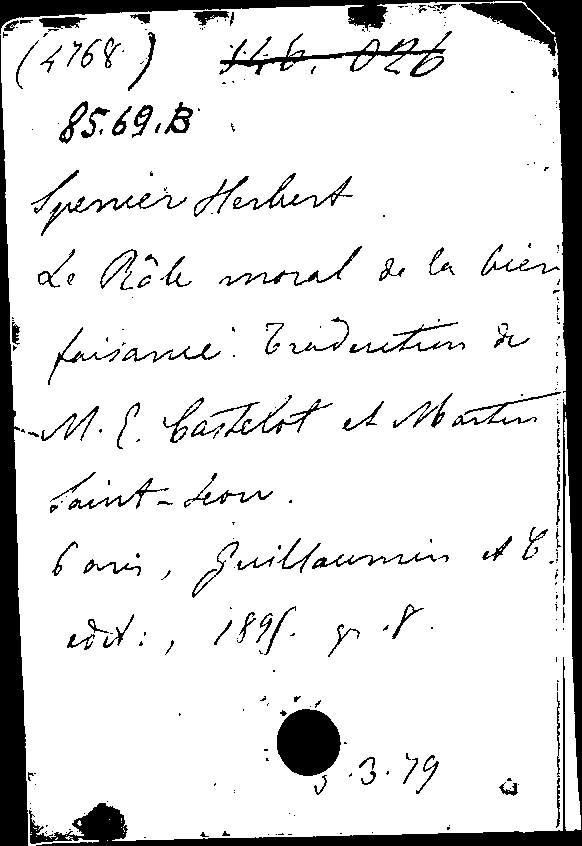 (4768) 146.026
85.69.B
Spencer Herbert
Le Rôle moral de la bien
faisance. Traduction de
M. E. Castelot et Martin
Saint-Leon.
Paris, Guillaumin et C.
edit:, 1895. gr. 8.
3.79